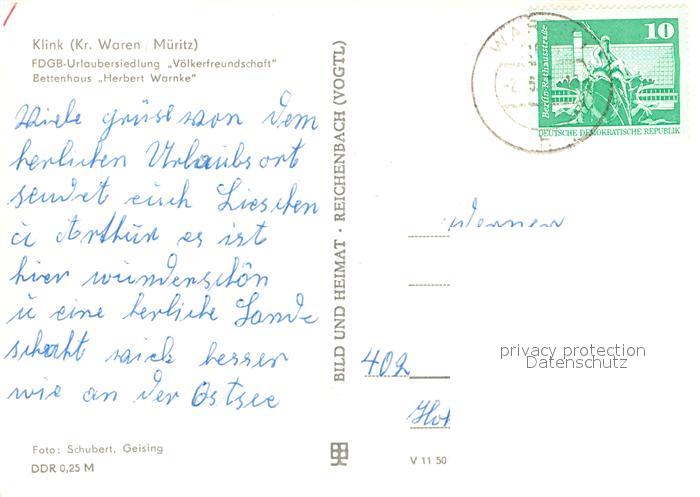 Klink (Kr. Waren Müritz)
FDGB-Urlaubersiedlung „Völkerfreundschaft“
Bettenhaus „Herbert Warnke“
Viele grüse von dem
herlichen Urlaubsort
sendet euch Lieschen
u Arthur es ist
hier wunderschön
u eine herliche Lands
schaht viel besser
wie an der Ostsee
Foto: Schubert, Geising
DDR 0,25 M
BILD UND HEIMAT · REICHENBACH (VOGTL)
WAR
10
Berlin-Rathausstraße
DEUTSCHE DEMOKRATISCHE REPUBLIK
402
V 11 50
privacy protection
Datenschutz